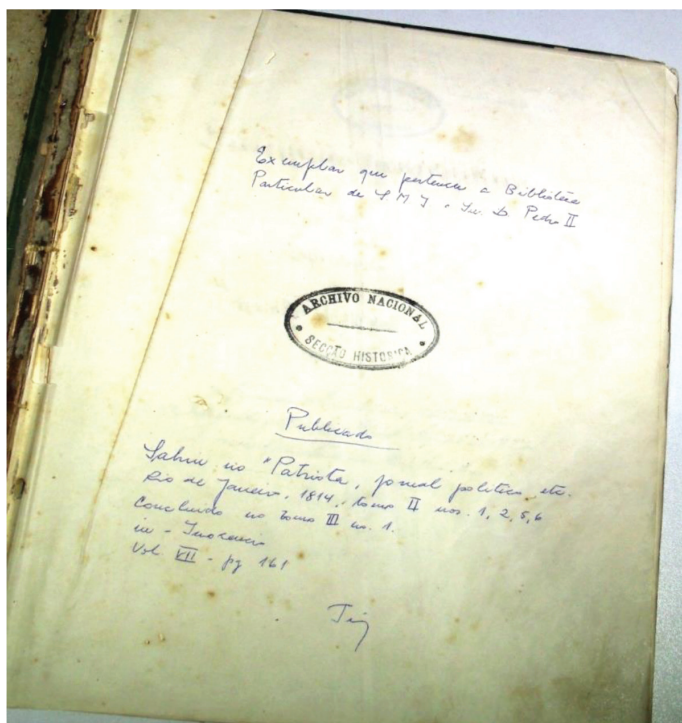 Exemplar que pertenceu a Bibliotheca
Particular de S M I o Snr. D. Pedro II
ARCHIVO NACIONAL
SECÇÃO HISTORICA
Publicado
Sahiu no "Patriota, jornal politico, etc.
Rio de Janeiro, 1814, tomo II nos. 1, 2, 5, 6
Concluido no tomo III no. 1.
in - Inocencio
Vol. VII - pg 161